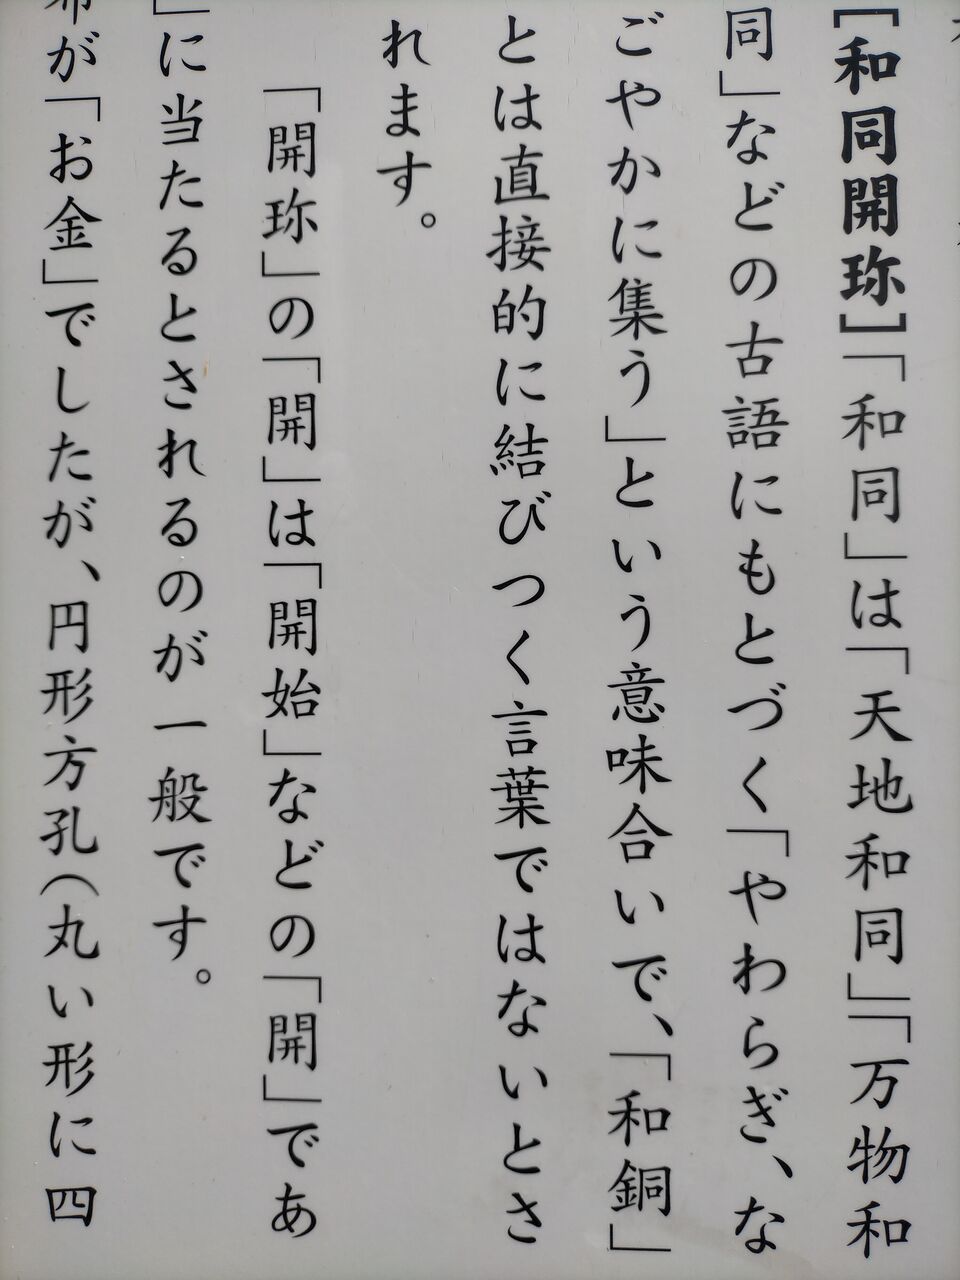 [和同開珎]「和同」は「天地和同」「万物和
同」などの古語にもとづく「やわらぎ、な
ごやかに集う」という意味合いで、「和銅」
とは直接的に結びつく言葉ではないとさ
れます。
「開珎」の「開」は「開始」などの「開」であ
」に当たるとされるのが一般です。
が「お金」でしたが、円形方孔(丸い形に四